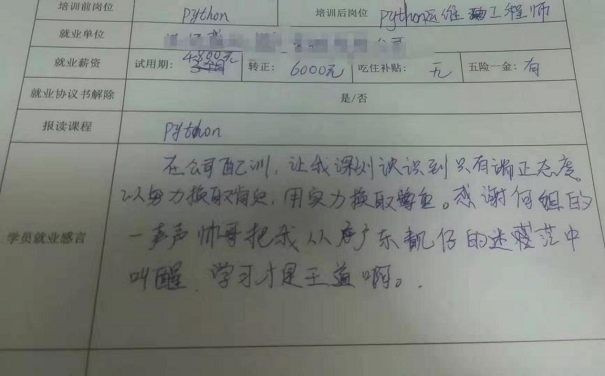 培训前岗位 Python 培训后岗位 Python运维工程师
就业单位 公司
就业薪资 试用期：4800元 转正：6000元 吃住补贴：无 五险一金：有
就业协议书解除 是/否
报读课程 Python
在公司配训，让我深刻认识到只有端正态度
以努力换取肯定，用实力换取。感谢何姐的
学员就业感言 一声声帅哥把我从广东靓仔的迷茫中
叫醒，学习才是王道啊。